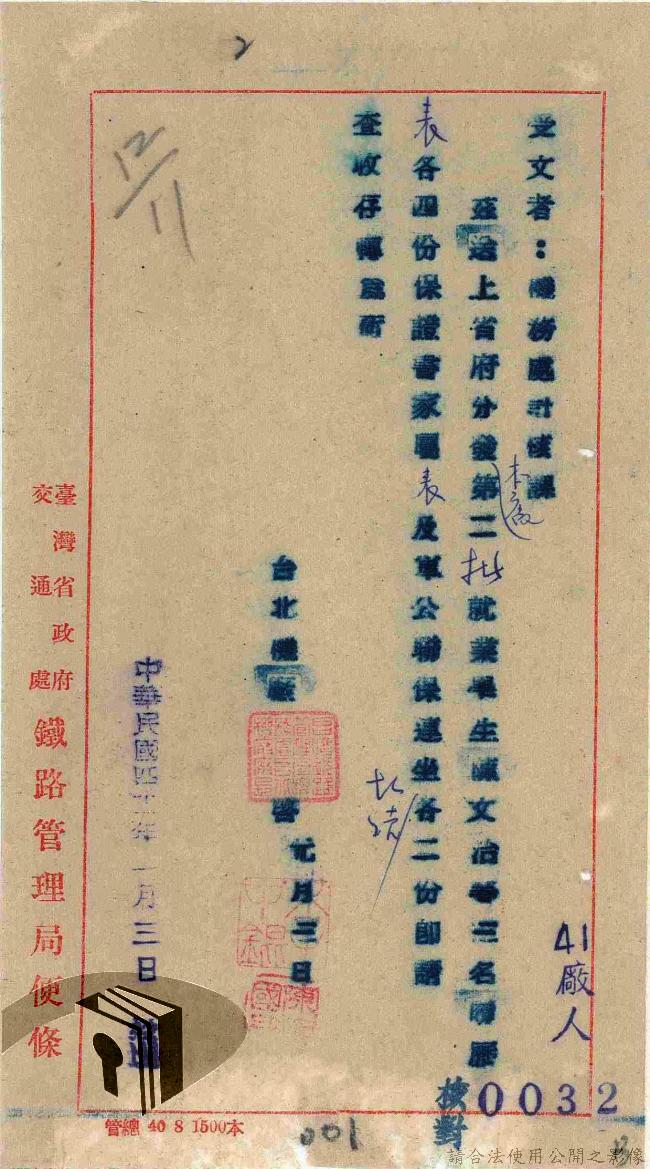 受文者：機務處計核課
茲送上省府分發本廠第二批就業學生陳文治等三名履歷
表各四份保證書家屬表及軍公聯保連坐各二份即請
查收存轉爲荷
台北機廠
啓 元月三日
中華民國四十一年一月三日
臺灣省政府
交通處
鐵路管理局便條
41廠人
0032
校對
管總 40 8 1500本
001
12/11
2
請合法使用公開之影像